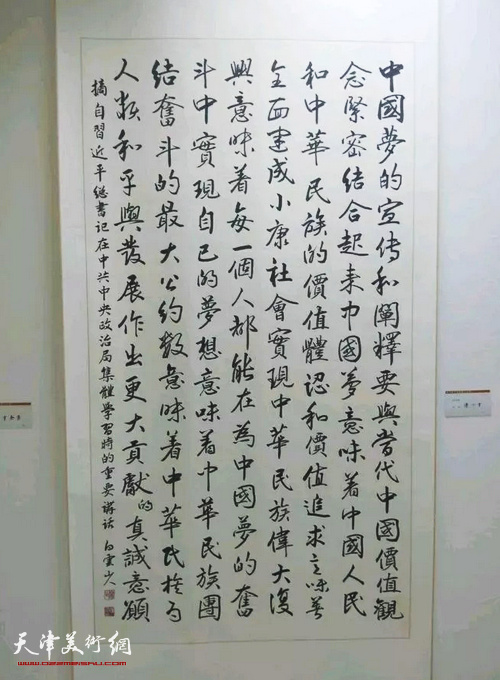 中國夢的宣传和闡釋要與當代中國價值觀
念緊密结合起来中國夢意味着中國人民
和中華民族的價值體認和價值追求意味着
全面建成小康社會實現中華民族偉大復
興意味着每一個人都能在為中國夢的奮
斗中實現自己的夢想意味着中華民族團
结奮斗的最大公约数意味着中華民族为
人類和平與發展作出更大貢獻的真誠意願
摘自習近平總書记在中共中央政治局集體學習時的重要講话 白雲山人
天津美術網